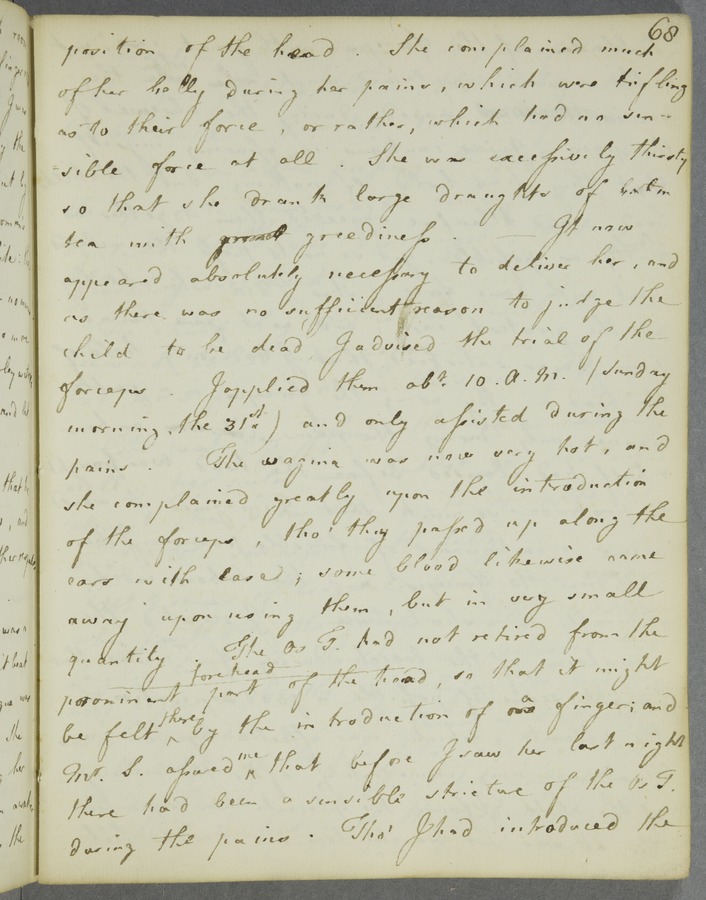 68
position of the head. She complained much
of her belly during her pains, which were trifling
as to their force, or rather, which had no sen-
sible force at all. She was excessively thirsty
so that she drank large draughts of
tea with great greediness. — It now
appeared absolutely necessary to deliver her, and
as there was no sufficient reason to judge the
child to be dead I advised the trial of the
forceps. I applied them abt. 10. A.M. (Sunday
morning, the 31st) and only assisted during the
pains. The vagina was now very hot, and
she complained greatly upon the introduction
of the forceps, tho' they passed up along the
ears with ease; some blood likewise came
away upon using them, but in very small
quantity. The Os T. had not retired from the
forehead
prominent part of the head, so that it might
be felt there by the introduction of a finger; and
Mr. S. assured me that before I saw her last night
there had been a sensible stricture of the Os T.
during the pains. Tho' I had introduced the